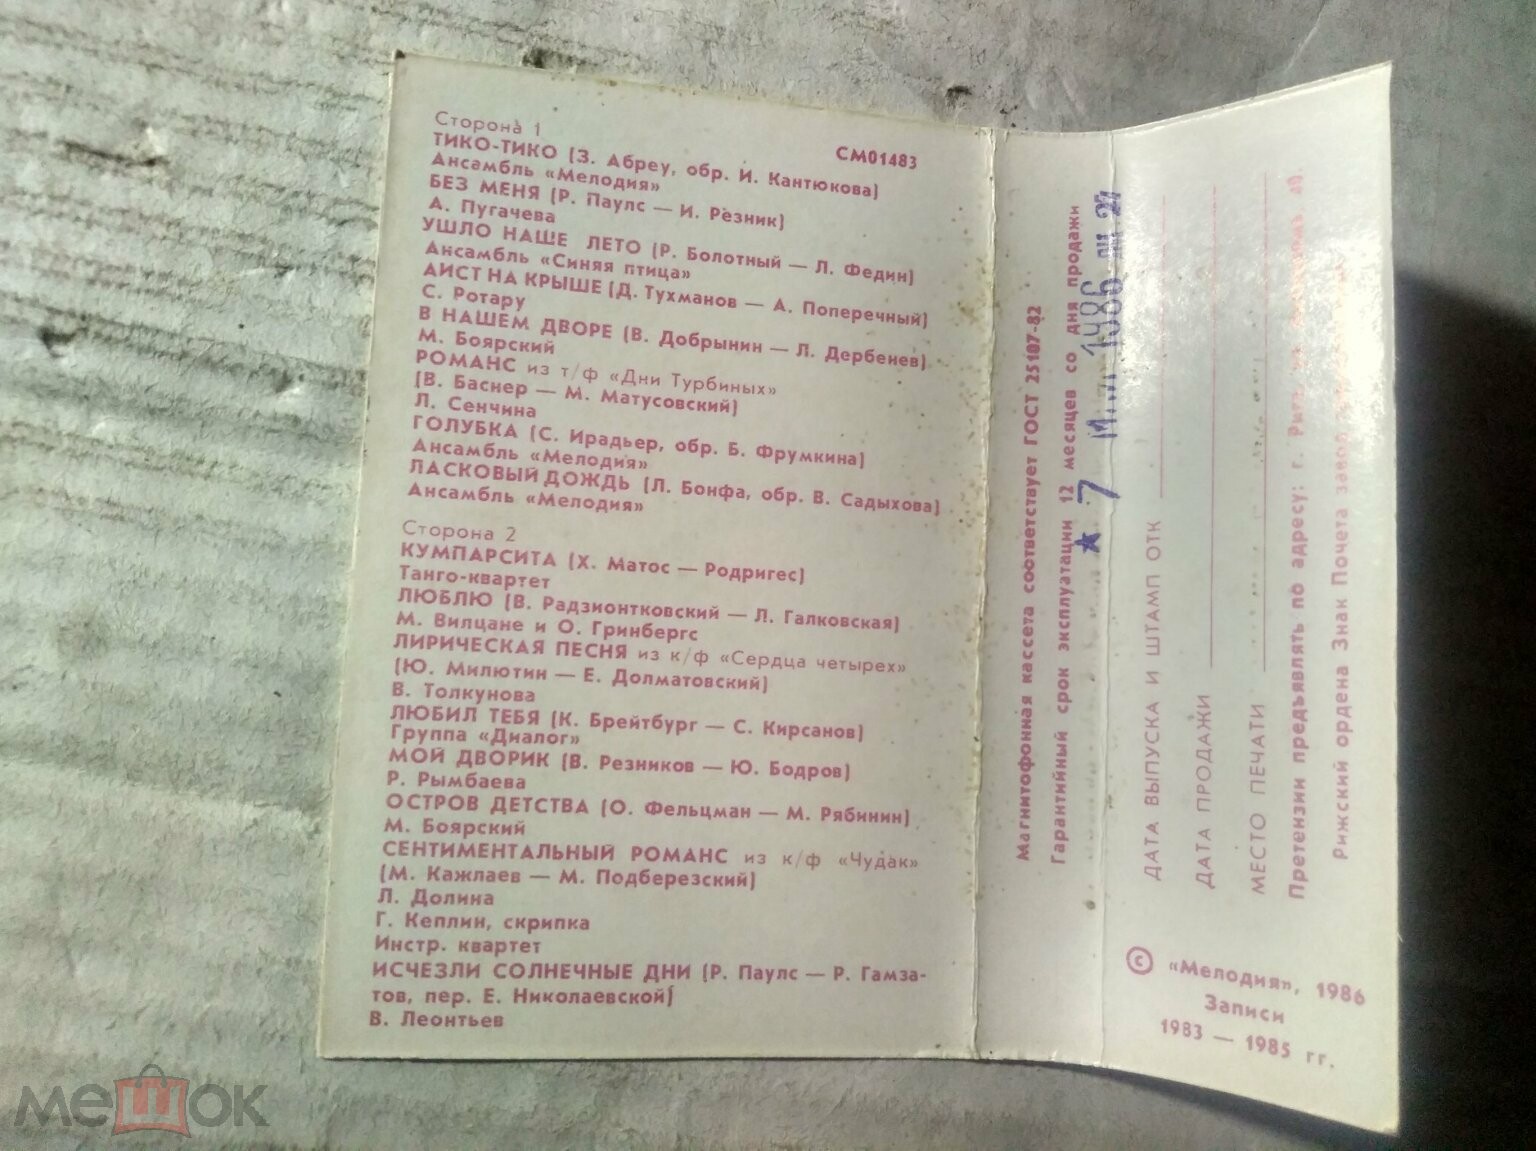 Сторона 1
СМ01483
ТИКО-ТИКО (З. Абреу, обр. И. Кантюкова)
Ансамбль «Мелодия»
БЕЗ МЕНЯ (Р. Паулс — И. Резник)
А. Пугачева
УШЛО НАШЕ ЛЕТО (Р. Болотный — Л. Федин)
Ансамбль «Синяя птица»
АИСТ НА КРЫШЕ (Д. Тухманов — А. Поперечный)
С. Ротару
В НАШЕМ ДВОРЕ (В. Добрынин — Л. Дербенев)
М. Боярский
РОМАНС из т/ф «Дни Турбиных»
(В. Баснер — М. Матусовский)
Л. Сенчина
ГОЛУБКА (С. Ирадьер, обр. Б. Фрумкина)
Ансамбль «Мелодия»
ЛАСКОВЫЙ ДОЖДЬ (Л. Бонфа, обр. В. Садыхова)
Ансамбль «Мелодия»
Сторона 2
КУМПАРСИТА (Х. Матос — Родригес)
Танго-квартет
ЛЮБЛЮ (В. Радзионтковский — Л. Галковская)
М. Вилцане и О. Гринбергс
ЛИРИЧЕСКАЯ ПЕСНЯ из к/ф «Сердца четырех»
(Ю. Милютин — Е. Долматовский)
В. Толкунова
ЛЮБИЛ ТЕБЯ (К. Брейтбург — С. Кирсанов)
Группа «Диалог»
МОЙ ДВОРИК (В. Резников — Ю. Бодров)
Р. Рымбаева
ОСТРОВ ДЕТСТВА (О. Фельцман — М. Рябинин)
М. Боярский
СЕНТИМЕНТАЛЬНЫЙ РОМАНС из к/ф «Чудак»
(М. Кажлаев — М. Подберезский)
Л. Долина
Г. Кеплин, скрипка
Инстр. квартет
ИСЧЕЗЛИ СОЛНЕЧНЫЕ ДНИ (Р. Паулс — Р. Гамза-
тов, пер. Е. Николаевской)
В. Леонтьев
Магнитофонная кассета соответствует ГОСТ 25107-82
Гарантийный срок эксплуатации 12 месяцев со дня продажи
★ 7 1986
ДАТА ВЫПУСКА И ШТАМП ОТК
ДАТА ПРОДАЖИ
МЕСТО ПЕЧАТИ
Претензии предъявлять по адресу: г. Рига
Рижский ордена Знак Почета завод
© «Мелодия», 1986
Записи
1983 — 1985 гг.
мешок